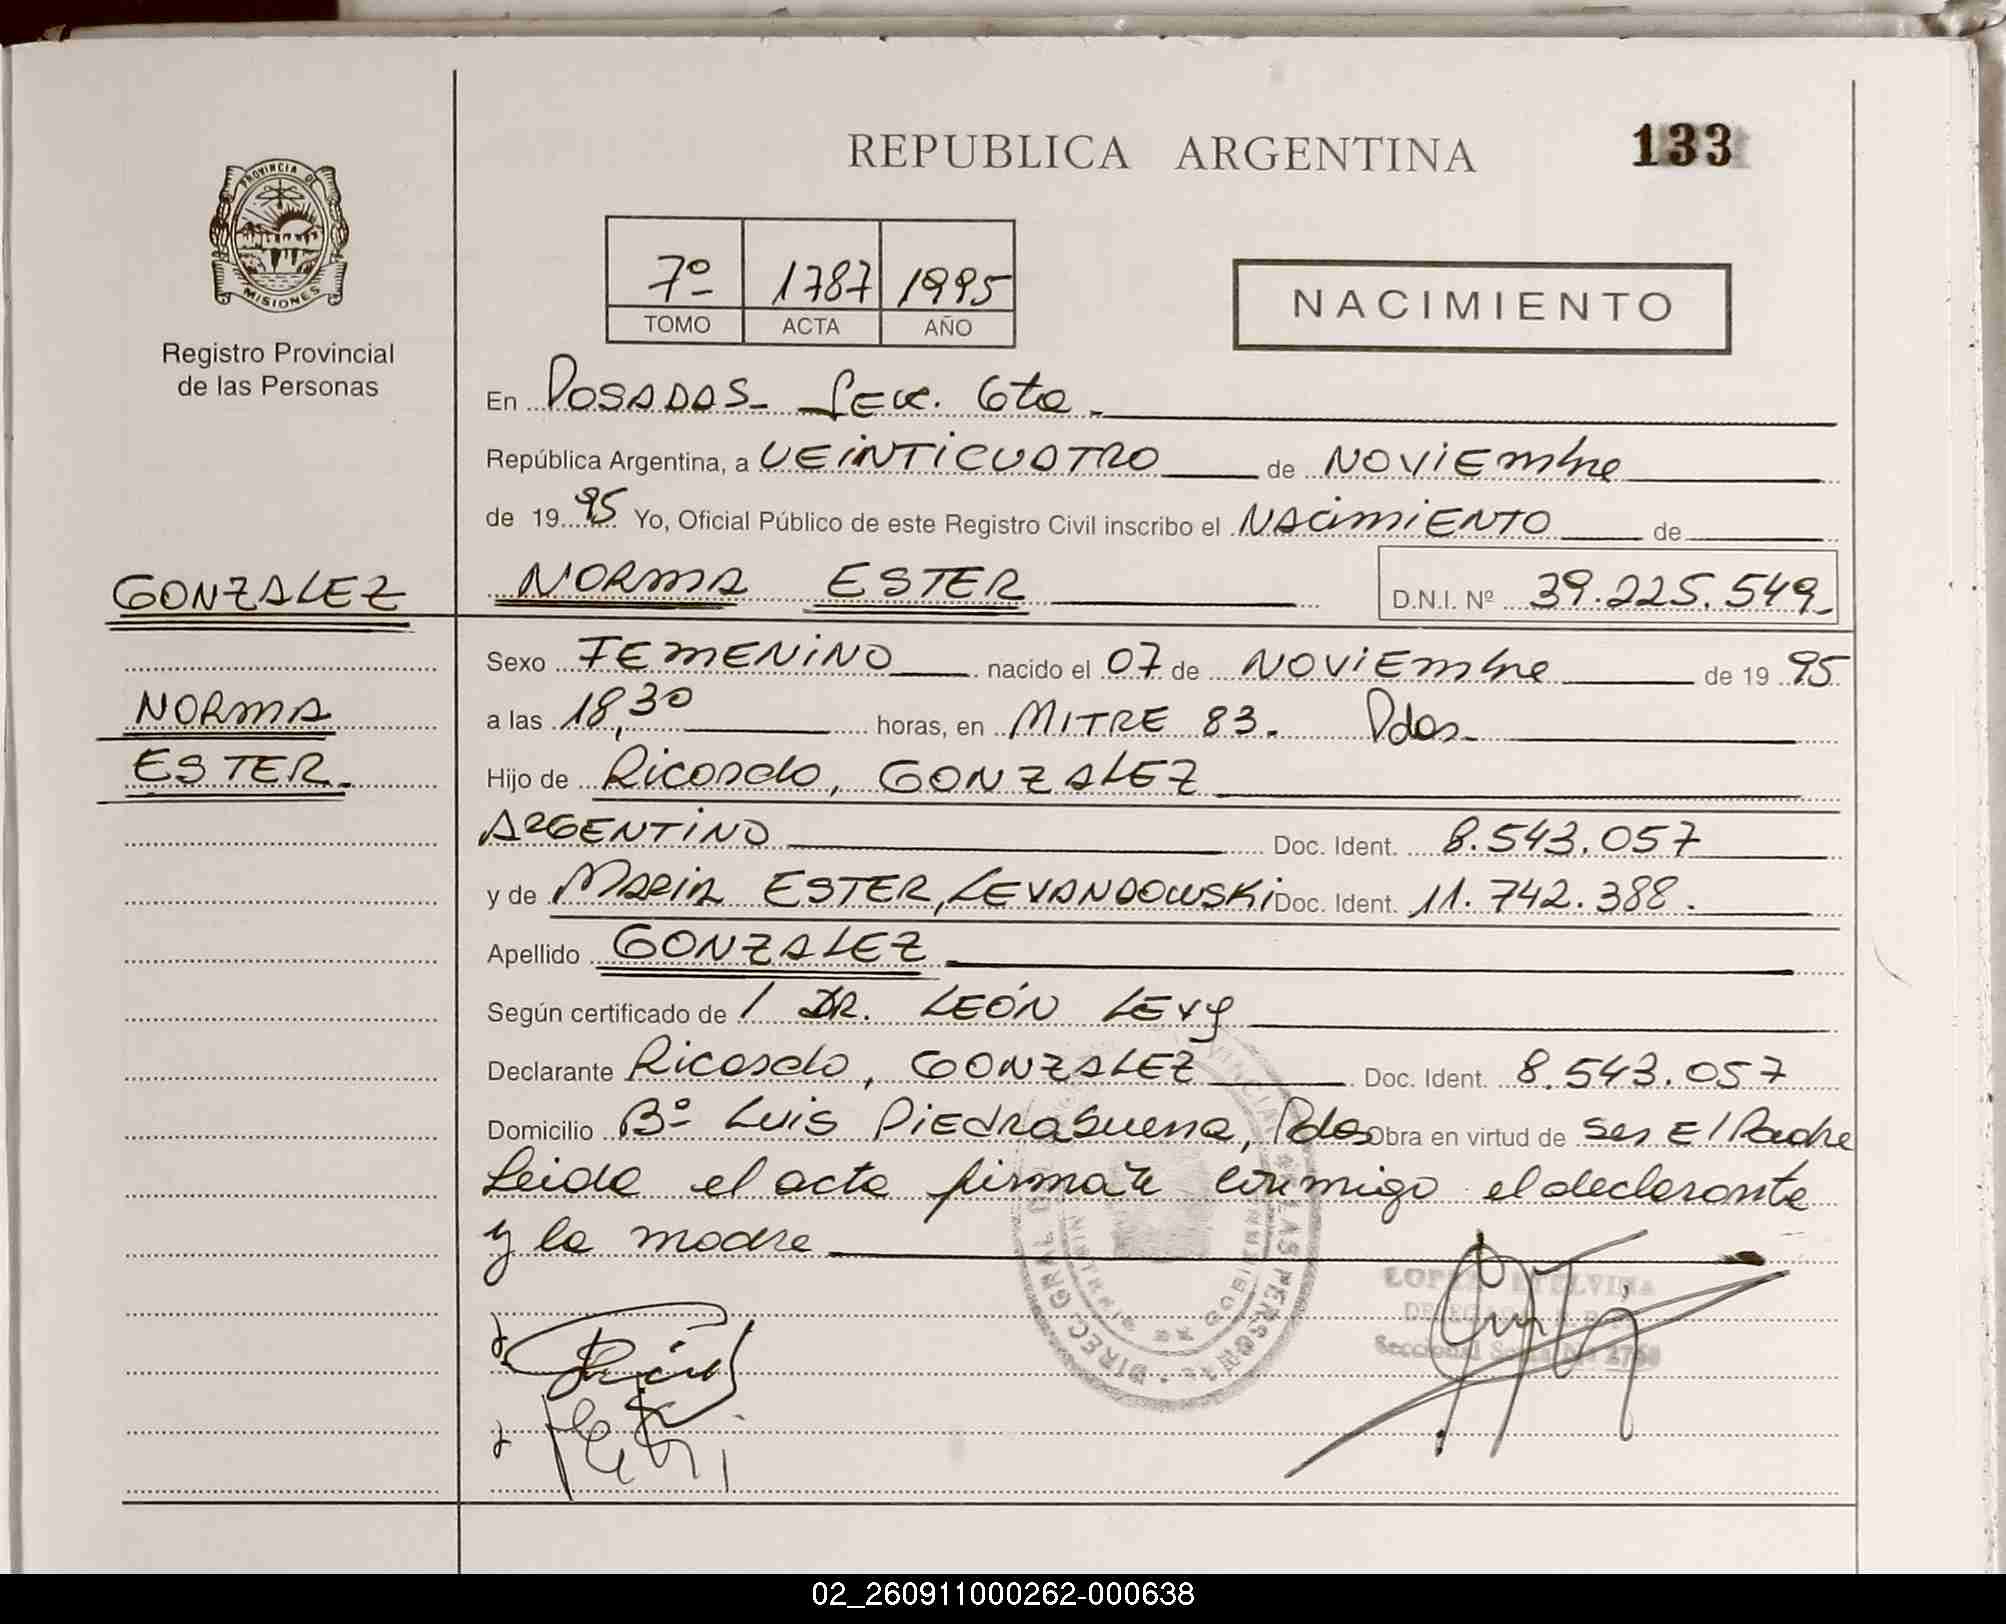 REPUBLICA ARGENTINA
133
PROVINCIA DE
MISIONES
Registro Provincial
de las Personas
7º 1787 1995
TOMO ACTA AÑO
NACIMIENTO
En POSADAS- Secc. 6ta.
República Argentina, a VEINTICUATRO de NOVIEMbre
de 19 95 Yo, Oficial Público de este Registro Civil inscribo el NACIMIENTO de
GONZALEZ
NORMA ESTER D.N.I. Nº 39.225.549
Sexo FEMENINO nacido el 07 de NOVIEMbre de 19 95
NORMA
a las 18,30 horas, en MITRE 83. Pdas.
ESTER.
Hijo de Ricardo, GONZALEZ
ARGENTINO Doc. Ident. 8.543.057
y de MARIA ESTER, LEVANDOWSKI Doc. Ident. 11.742.388.
Apellido GONZALEZ
Según certificado de / DR. LEÓN LEVY
Declarante Ricardo, GONZALEZ Doc. Ident. 8.543.057
Domicilio Bº Luis PiEdrabuena, Pdas Obra en virtud de ser El Padre
Leida el acta firmará conmigo el declarante
y la madre
DIREC. GRAL. DEL PROVINCIAL LAS PERSONAS
LOPEZ ETELVINA
Seccional
02_260911000262-000638